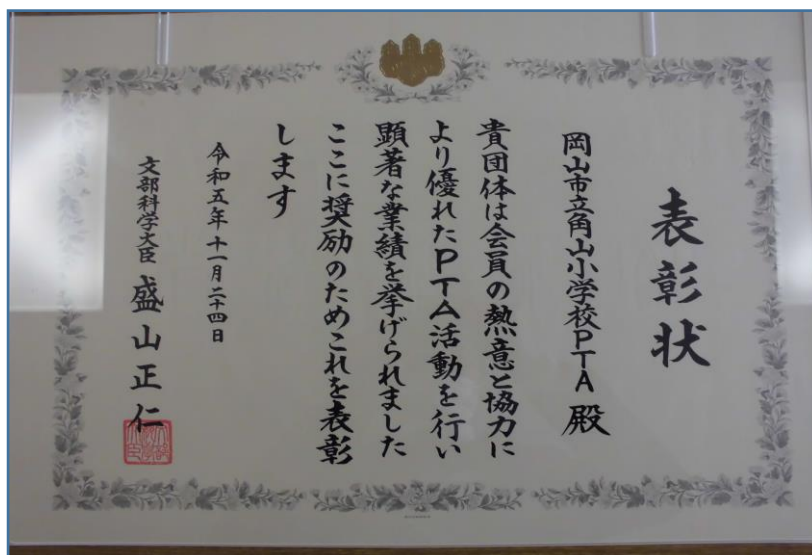 表彰状
岡山市立角山小学校PTA 殿
貴団体は会員の熱意と協力に
より優れたPTA活動を行い
顕著な業績を挙げられました
ここに奨励のためこれを表彰
します
令和五年十一月二十四日
文部科学大臣 盛山正仁